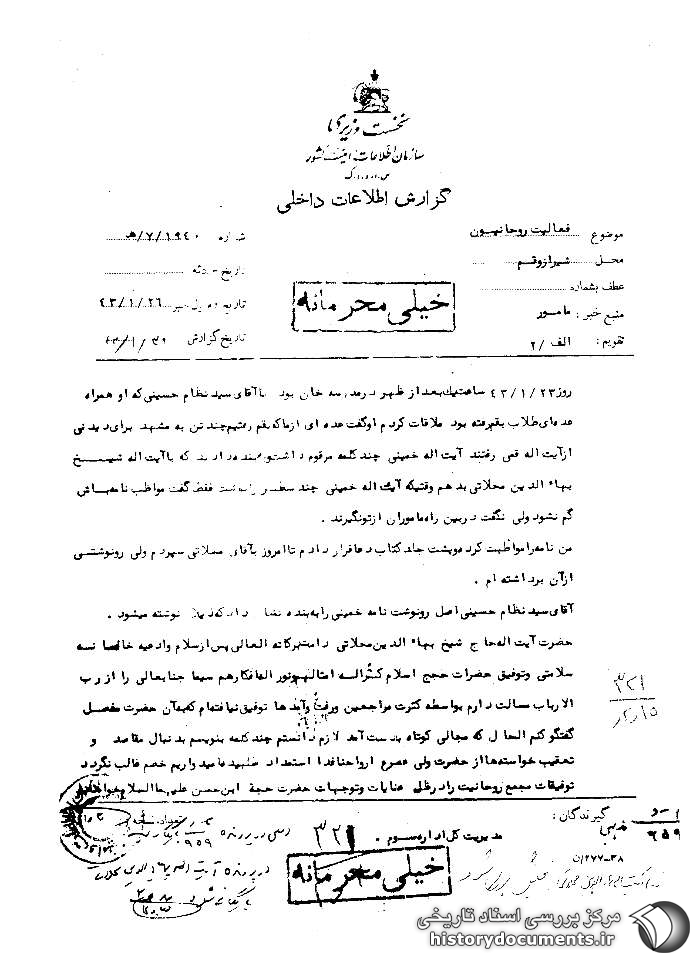 نخست وزیری
سازمان اطلاعات و امنیت کشور
س.ا.و.ا.ک
گزارش اطلاعات داخلی
موضوع فعالیت روحانیون
شماره ۱۹۴۰/۷/ه
محل شیراز و قم
تاریخ حادثه
عطف بشماره
تاریخ وصول خبر ۴۳/۱/۲۶
منبع خبر: مامور
تاریخ گزارش
تقویم: الف /۲
خیلی محرمانه
روز ۴۳/۱/۲۳ ساعت یک بعد از ظهر در مدرسه خان بود با آقای سید نظام حسینی که او همراه
عده‌ای طلاب بقم رفته بود ملاقات کردم او گفت عده ای از ما که بقم رفتیم چند تن به مشهد برای دیدنی
از آیت اله قمی رفتند آیت اله خمینی چند کلمه مرقوم داشتو بنده دادند که با آیت اله شیخ
بهاء الدین محلاتی بدهم وقتیکه آیت اله خمینی چند سطر را نوشت فقط گفت مواظب نامه باش
گم نشود ولی نگفت در بین راه ماموران از تو نگیرند .
من نامه را مواظبت کردم و پشت جلد کتاب دعا قرار دادم تا امروز بآقای محلاتی سپردم ولی رونوشتی
از آن برداشته ام .
آقای سید نظام حسینی اصل رونوشت نامه خمینی را به بنده نشان داد که ذیلا نوشته میشود .
حضرت آیت اله حاج شیخ بهاء الدین محلاتی دامت برکاته العالی پس از سلام و ادعیه خالصانه
سلامتی و توفیق حضرات حجج اسلام کثراله امثالهم و نور اله افکارهم سیما جنابعالی را از رب
الارباب مسالت دارم بواسطه کثرت مراجعین و رفت و آمد ها توفیق نیافته‌ام که با آن حضرت مفصل
گفتگو کنم الحال که مجالی کوتاه بدست آمد لازم دانستم چند کلمه بنویسم بدنبال مقاصد و
تعقیب خواسته‌ها از حضرت ولی عصر ارواحنا فدا استعداد طلبید امیدواریم خصم غالب نگردد
توفیقات مجمع روحانیت را در ظل عنایات و توجهات حضرت حجة ابن حسن علیهما السلام خواهانم
۳۲۱
گیرندگان:
مدیریت کل اداره سوم . ۳۲۱
۹۵۹
خیلی محرمانه
مرکز بررسی اسناد تاریخی
historydocuments.ir